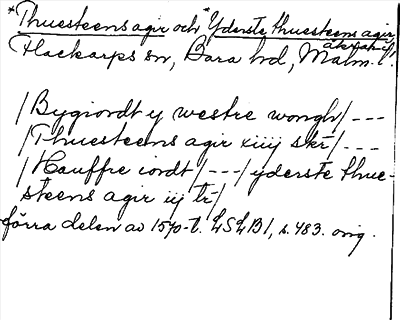 *Thuesteens agir och *Yderste thuesteens agir,
åkrar i
Flackarps sn, Bara hd, Malm. l.
/Bygiordt y westre wongh/ ---
/Thuesteens agir xiiij skr/ ---
/Hauffre iordt/ ---/ yderste thue-
steens agir iij tr/
förra delen av 1570-t. LSLB1, s. 483. orig.